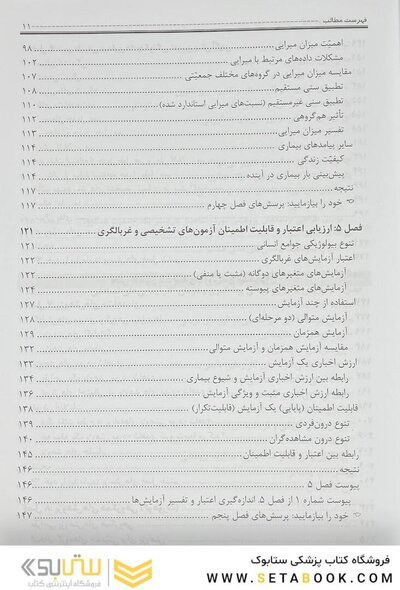 فهرست مطالب ۱۱
اهمیّت میزان میرایی ۹۸
مشکلات داده‌های مرتبط با میرایی ۱۰۲
مقایسه میزان میرایی در گروه‌های مختلف جمعیّتی ۱۰۷
تطبیق سنی مستقیم ۱۰۸
تطبیق سنی غیرمستقیم (نسبت‌های میرایی استاندارد شده) ۱۱۰
تأثیر هم‌گروهی ۱۱۲
تفسیر میزان میرایی ۱۱۳
سایر پیامدهای بیماری ۱۱۴
کیفیّت زندگی ۱۱۴
پیش‌بینی بار بیماری در آینده ۱۱۴
نتیجه ۱۱۷
خود را بیازمایید: پرسش‌های فصل چهارم ۱۱۷
فصل ۵: ارزیابی اعتبار و قابلیت اطمینان آزمون‌های تشخیصی و غربالگری ۱۲۱
تنوع بیولوژیکی جوامع انسانی ۱۲۱
اعتبار آزمایش‌های غربالگری ۱۲۲
آزمایش‌های متغیرهای دوگانه (مثبت یا منفی) ۱۲۲
آزمایش‌های متغیرهای پیوسته ۱۲۴
استفاده از چند آزمایش ۱۲۷
آزمایش متوالی (دو مرحله‌ای) ۱۲۸
آزمایش همزمان ۱۲۹
مقایسه آزمایش همزمان و آزمایش متوالی ۱۳۲
ارزش اخباری یک آزمایش ۱۳۳
رابطه بین ارزش اخباری آزمایش و شیوع بیماری ۱۳۴
رابطه ارزش اخباری مثبت و ویژگی آزمایش ۱۳۶
قابلیت اطمینان (پایایی) یک آزمایش (قابلیت‌تکرار) ۱۳۸
تنوع درون‌فردی ۱۳۹
تنوع درون مشاهده‌گران ۱۴۰
رابطه بین اعتبار و قابلیت اطمینان ۱۴۵
نتیجه ۱۴۶
پیوست فصل ۵
پیوست شماره ۱ از فصل ۵. اندازه‌گیری اعتبار و تفسیر آزمایش‌ها ۱۴۶
خود را بیازمایید: پرسش‌های فصل پنجم ۱۴۷
فروشگاه کتاب پزشکی ستابوک
WWW.SETABOOK.COM
ستابوک
فروشگاه اینترنتی کتاب